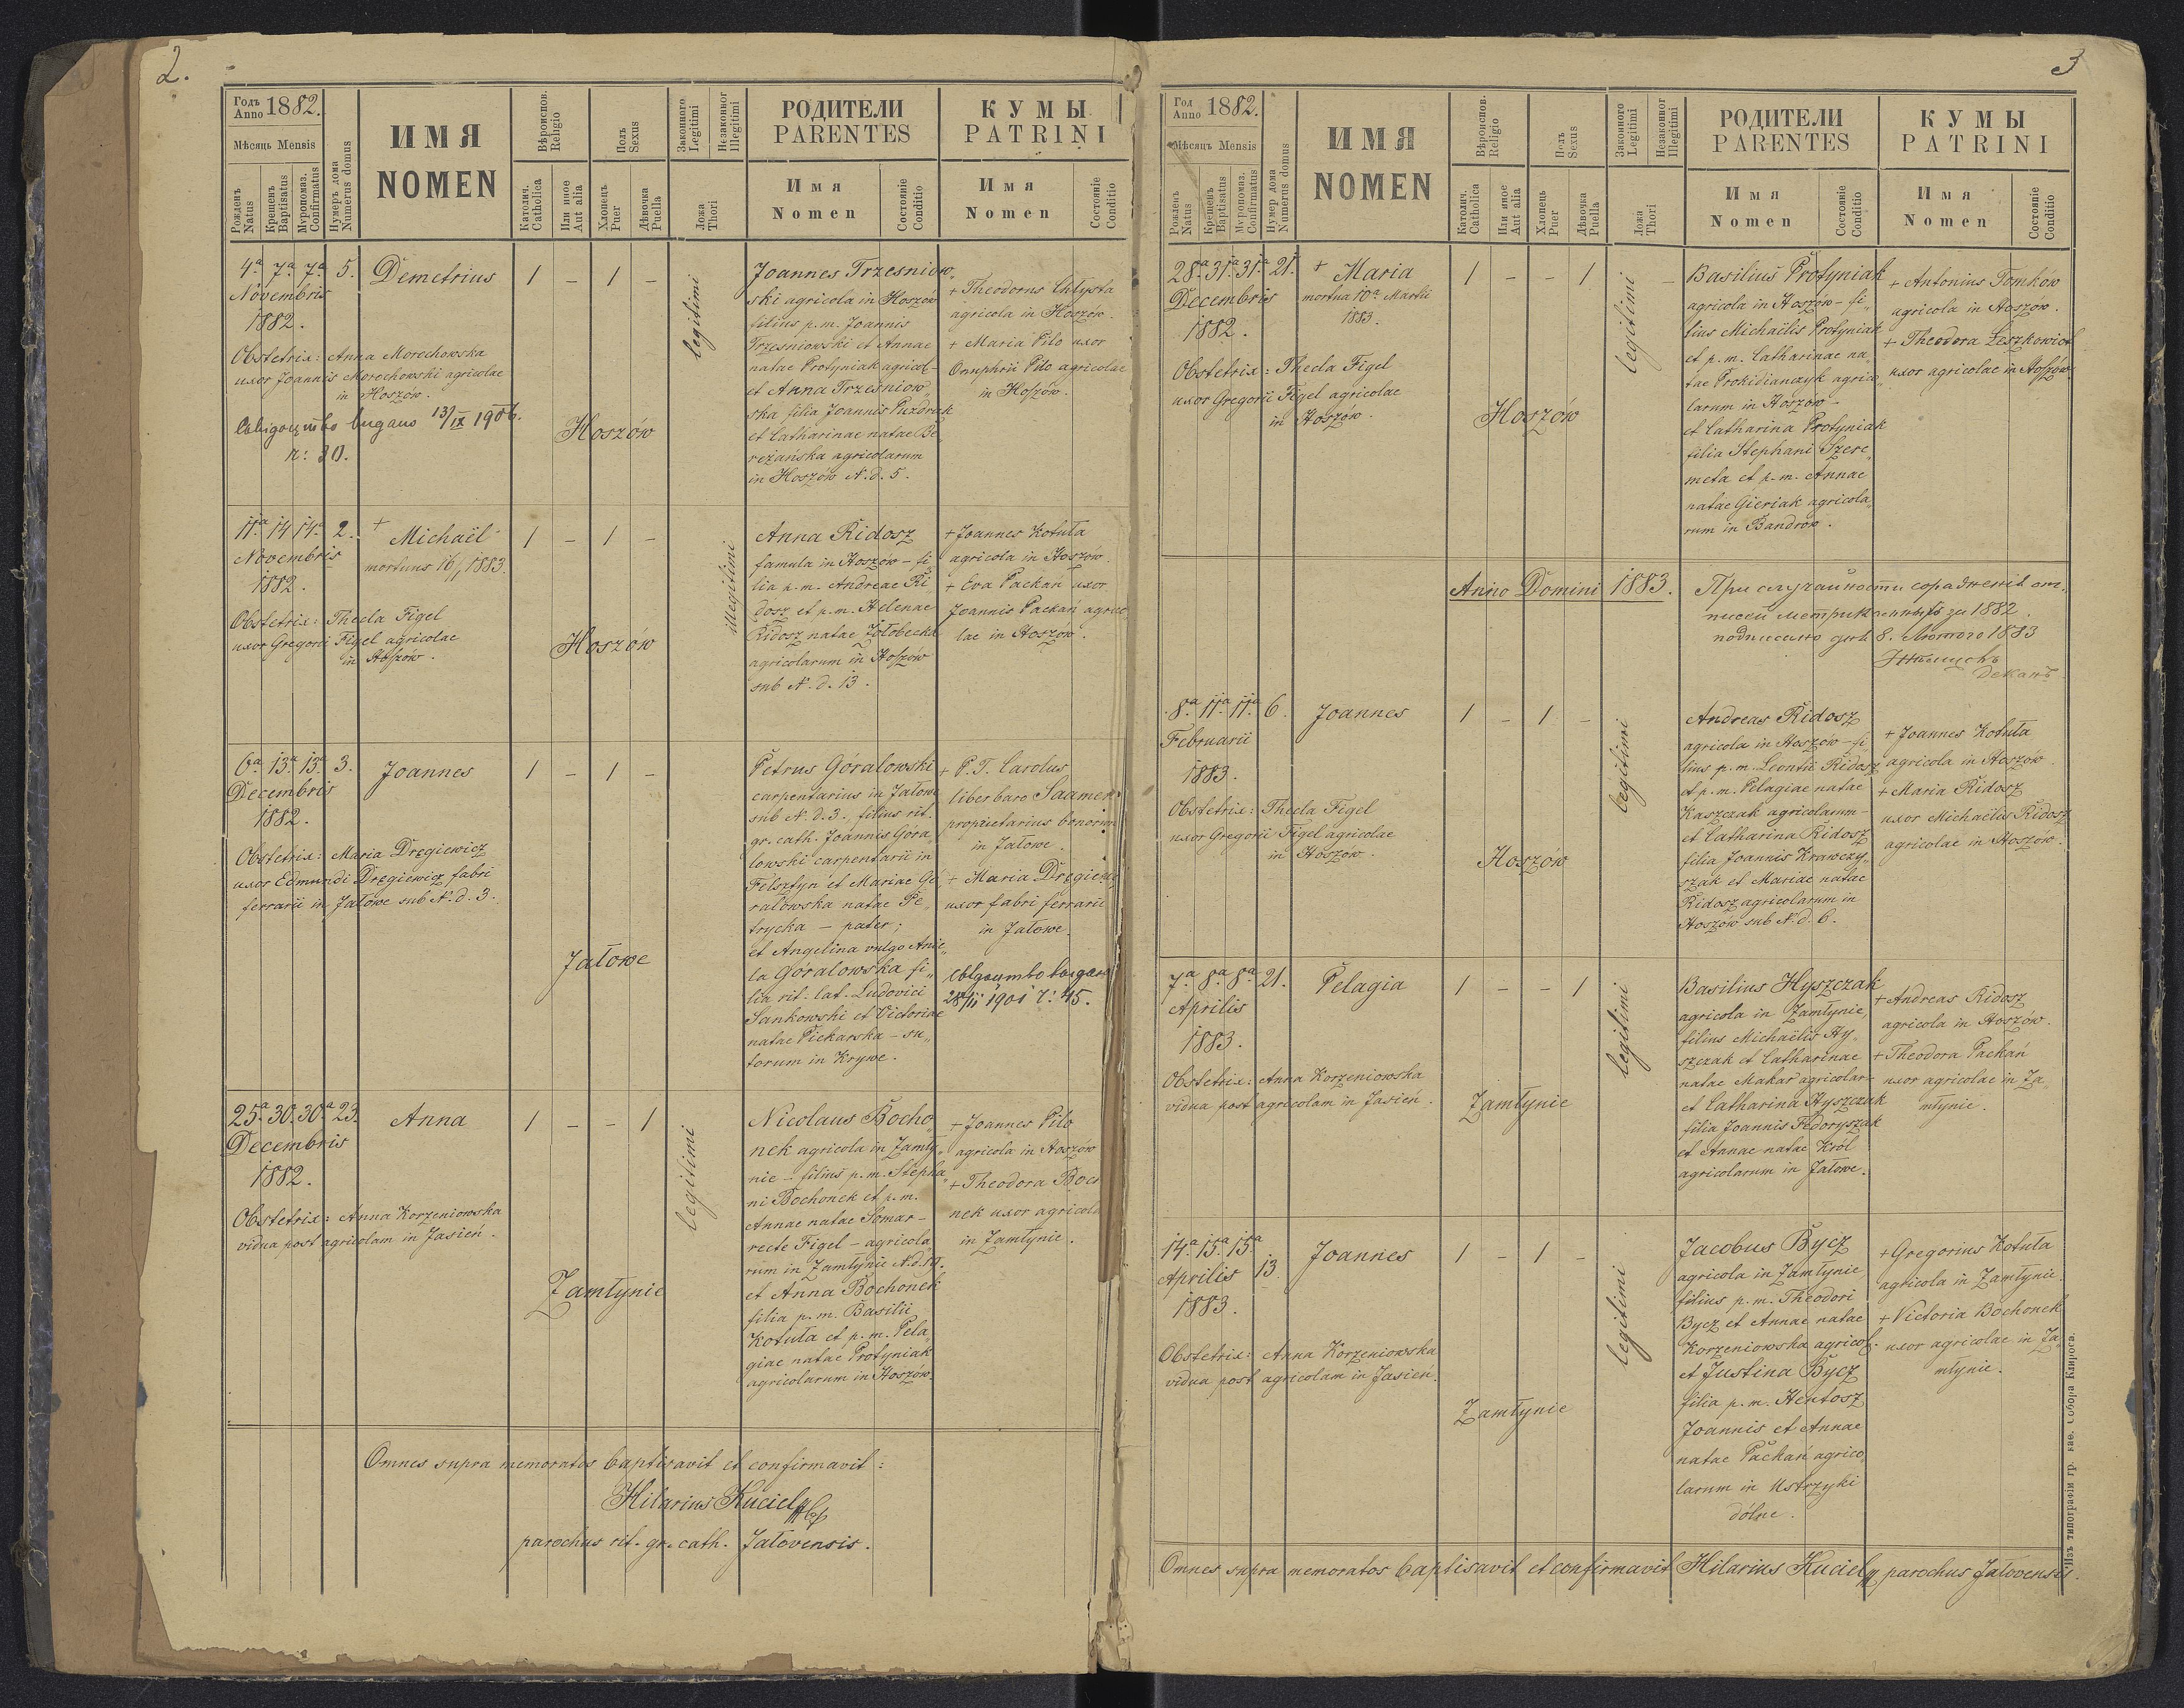 2.
Годъ Anno 1882.
Мѣсяць Mensis
Рожденъ Natus
Крещенъ Baptisatus
Муропомаз. Confirmatus
Нумеръ дома Numerus domus
ИМЯ
NOMEN
Вѣроиспов. Religio
Католич. Catholica
Или иное Aut alia
Полъ Sexus
Хлопець Puer
Дѣвочка Puella
Законного Legitimi
Незаконног Illegitimi
Ложа Thori
РОДИТЕЛИ
PARENTES
Имя Nomen
Состояніе Conditio
КУМЫ
PATRINI
Имя Nomen
Состояніе Conditio
4ª 7ª 7ª 5. Demetrius 1 – 1 –
Novembris
1882.
Obstetrix: Anna Morochowska
uxor Joannis Morochowski agricolae
in Hoszów.
13/IX 1906.
n: 30.
Hoszów
legitimi
Joannes Trzesniow„
ski agricola in Hoszów
filius p.m. Joannis
Trzesniowski et Annae
natae Protyniak agricol–
et Anna Trzesniow„
ska filia Joannis Puzdrak
et Catharinae natae Be„
reżańska agricolarum
in Hoszów N.d. 5.
+ Theodorus Chłysta
agricola in Hoszów.
+ Maria Pilo uxor
Onuphrii Pilo agricolae
in Hoszów.
11ª 14 14ª 2. + Michaël 1 – 1 –
Novembris
1882.
mortuus 16/1 1883.
Obstetrix: Thecla Figel
uxor Gregorii Figel agricolae
in Hoszów.
Hoszów
illegitimi
Anna Ridosz
famula in Hoszów – fi„
lia p.m. Andreae Ri„
dosz et p.m. Helenae
Ridosz natae Żołobecka
agricolarum in Hoszów
sub N.d. 13.
+ Joannes Kotuła
agricola in Hoszów.
+ Eva Packań uxor
Joannis Packań agrico„
lae in Hoszów.
6ª 13ª 13ª 3. Joannes 1 – 1 –
Decembris
1882.
Obstetrix: Maria Dręgiewicz
uxor Edmundi Dręgiewicz fabri
ferrarii in Jałowe sub N.d. 3.
Jałowe
Petrus Góralowski
carpentarius in Jałowe
sub N.d. 3., filius rit.
gr. cath. Joannis Góra„
lowski carpentarii in
Felsztyn et Mariae Gó„
ralowska natae Pe„
trycka – pater;
et Angelina vulgo Anie„
la Góralowska fi„
lia rit: lat. Ludovici
Sankowski et Victoriae
natae Piekarska – su„
torum in Krywe.
+ P.T. Carolus
liber baro Saamen
proprietarius bonorum
in Jałowe.
+ Maria Dręgiewicz
uxor fabri ferrarii
in Jałowe.
28/II 1901 45.
25ª 30ª 30ª 23. Anna 1 – – 1
Decembris
1882.
Obstetrix: Anna Korzeniowska
vidua post agricolam in Jasień.
Zamłynie
legitimi
Nicolaus Bocho„
nek agricola in Zamły„
nie – filius p.m. Stepha„
ni Bochonek et p.m.
Annae natae Somar –
recte Figel – agricola„
rum in Zamłynie
et Anna Bochonek
filia p.m. Basilii
Kotuła et p.m. Pela„
giae natae Protyniak
agricolarum in Hoszów.
+ Joannes Pilo
agricola in Hoszów
+ Theodora Bocho
nek uxor agricolae
in Zamłynie.
Omnes supra memoratos baptisavit et confirmavit:
Hilarius Kuciel
parochus rit. gr. cath. Jałovensis.
3
Год Anno 1882.
Мѣсяць Mensis
Рожденъ Natus
Крещенъ Baptisatus
Муропомаз. Confirmatus
Нумер дома Numerus domus
ИМЯ
NOMEN
Вѣроиспов. Religio
Католич. Catholica
Или иное Aut alia
Полъ Sexus
Хлопець Puer
Дѣвочка Puella
Законного Legitimi
Незаконног Illegitimi
Ложа Thori
РОДИТЕЛИ
PARENTES
Имя Nomen
Состояніе Conditio
КУМЫ
PATRINI
Имя Nomen
Состояніе Conditio
28ª 31ª 31ª 21. + Maria 1 – – 1 –
Decembris
1882.
mortua 10ª Martii
1883.
Obstetrix: Thecla Figel
uxor Gregorii Figel agricolae
in Hoszów.
Hoszów
legitimi
Basilius Protyniak
agricola in Hoszów – fi„
lius Michaëlis Protyniak
et p.m. Catharinae na„
tae Prokidianczyk agrico„
larum in Hoszów –
et Catharina Protyniak
filia Stephani Szere„
meta et p.m. Annae
natae Gieriak agricola„
rum in Bandrów.
+ Antonius Tomków
agricola in Hoszów.
+ Theodora Leszkowicz
uxor agricolae in Hoszów
Anno Domini 1883.
При случайности сорадженія от„
писей метрикальныхъ за 1882.
подписано дня 8. Лютого 1883
Деканъ
8ª 11ª 11ª 6. Joannes 1 – 1 –
Februarii
1883.
Obstetrix: Thecla Figel
uxor Gregorii Figel agricolae
in Hoszów.
Hoszów
legitimi
Andreas Ridosz
agricola in Hoszów – fi„
lius p.m. Leontii Ridosz
et p.m. Pelagiae natae
Kaszczak agricolarum –
et Catharina Ridosz
filia Joannis Krawczy„
szak et Mariae natae
Ridosz agricolarum in
Hoszów sub N.d. 6.
+ Joannes Kotuła
agricola in Hoszów.
+ Maria Ridosz
uxor Michaëlis Ridosz
agricolae in Hoszów.
7ª 8ª 8ª 21. Pelagia 1 – – 1
Aprilis
1883.
Obstetrix: Anna Korzeniowska
vidua post agricolam in Jasień.
Zamłynie
legitimi
Basilius Hyszczak
agricola in Zamłynie,
filius Michaëlis Hy„
szczak et Catharinae
natae Makar agricolar–
et Catharina Hyszczak
filia Joannis Fedoryszak
et Annae natae Król
agricolarum in Jałowe.
+ Andreas Ridosz
agricola in Hoszów.
+ Theodora Packań
uxor agricolae in Za„
młynie.
14ª 15ª 15ª 13. Joannes 1 – 1 –
Aprilis
1883.
Obstetrix: Anna Korzeniowska
vidua post agricolam in Jasień.
Zamłynie
legitimi
Jacobus Bycz
agricola in Zamłynie
filius p.m. Theodori
Bycz et Annae natae
Korzeniowska agricol.
et Justina Bycz
filia p.m. Hentosz
Joannis et Annae
natae Packań agrico„
larum in Ustrzyki
dólne.
+ Gregorius Kotuła
agricola in Zamłynie.
+ Victoria Bochonek
uxor agricolae in Za„
młynie.
Omnes supra memoratos baptisavit et confirmavit Hilarius Kuciel parochus Jałovensis.
Изъ типографіи гр. кае. Собора Клироса.